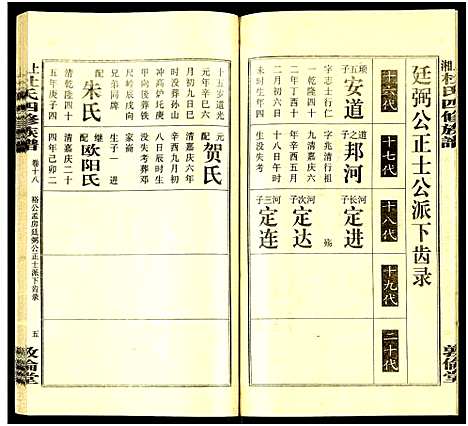 上杜氏四修族譜
廷弼公正士公派下齿录
十六代
十七代
十八代
十九代
二十代
五子 安道
字志士行仁
一乾隆四十
生嘉庆四年
没未时生年
之子 邦河
字兆清行祖
清嘉庆四年
辛酉九月二
十八日午时
生没失考
河长子 定进
殇
河次子 定达
河三子 定连
元年辛巳
五岁道光
月初九日巳
时没葬孙山
冲高炉圫庚
甲向後葬铁
尺岭辰戌向
兄弟同牌
配 朱氏
清乾隆四十
五年庚子四
配 贺氏
清嘉庆六年
辛酉九月初
八日辰时生
没失考葬邓
家崙
生子一 进
继配 欧阳氏
清嘉庆二十
四年己卯二
卷十八
裕公孟房廷弼公正士派下齿录
五
敦倫堂
敦倫堂